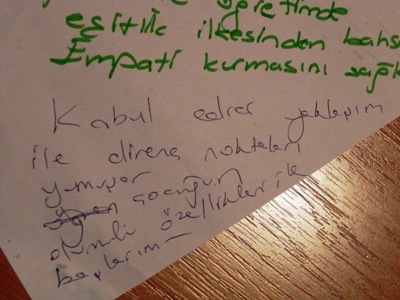 öğretimde
eşitlik ilkesinden bahs
Empati kurmasını sağl
Kabul eder yaklaşım
ile direnç noktaları
yumuşar
çocuğun
olumlu özellikleri ile
başlarım